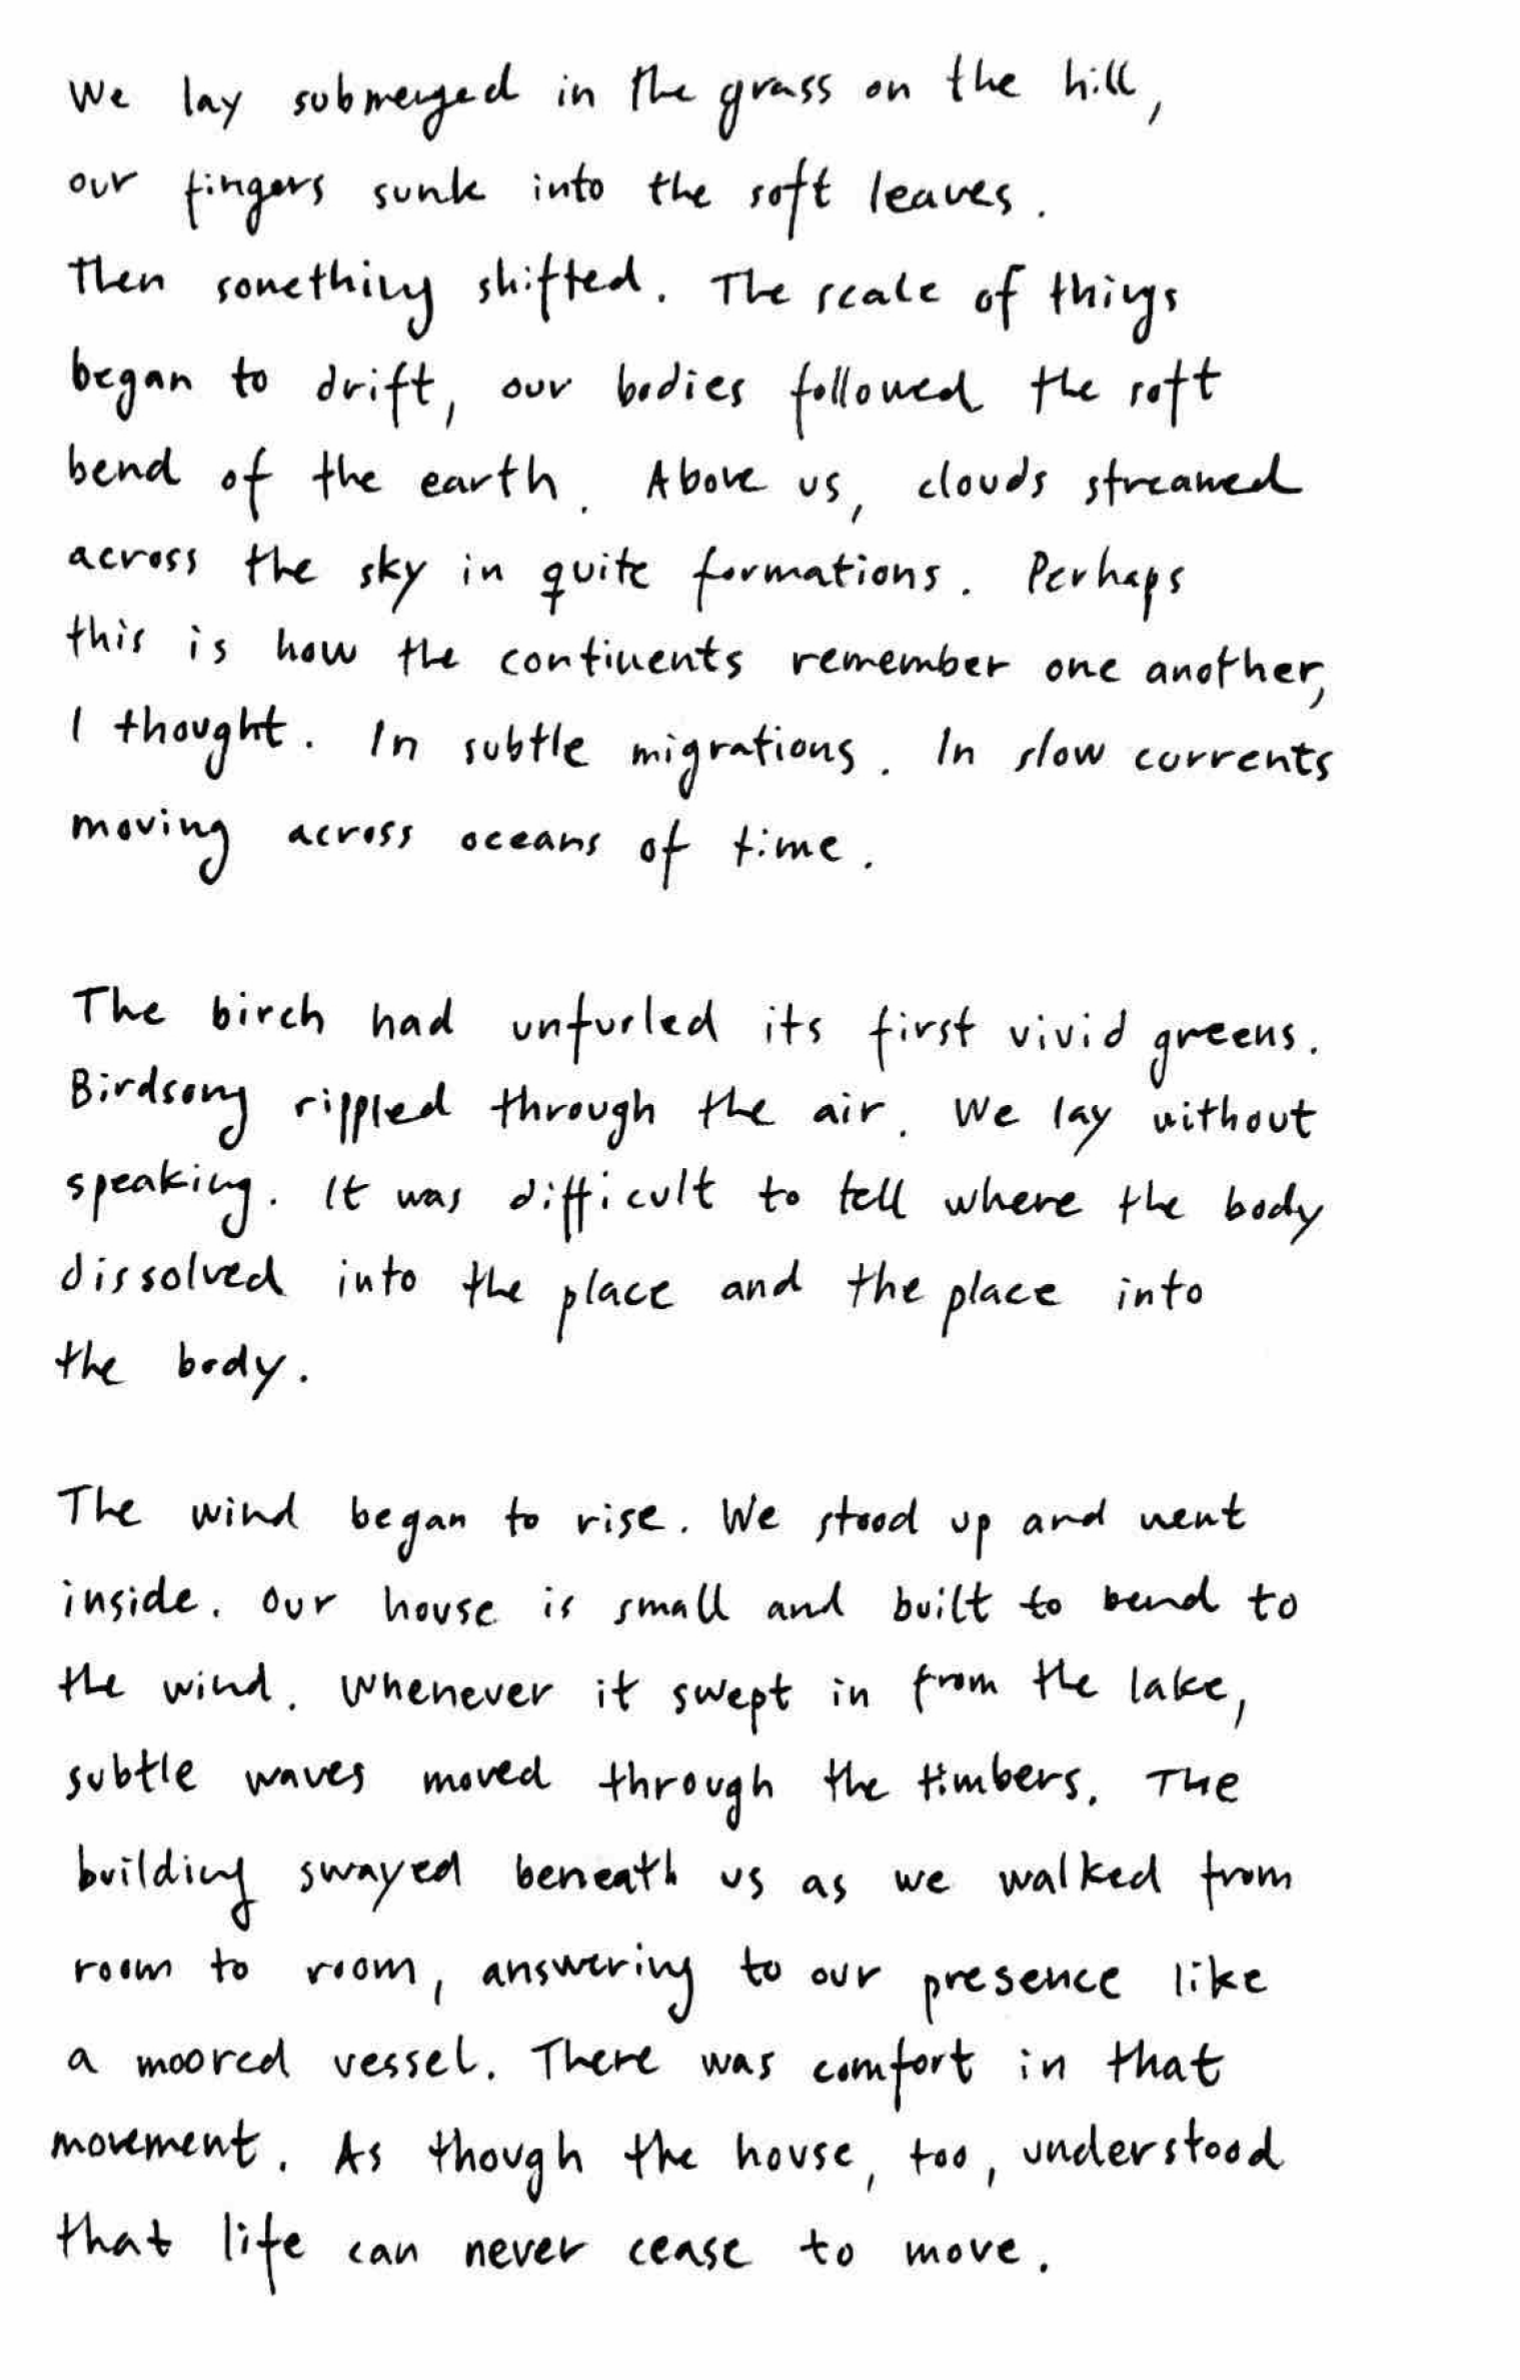 We lay submerged in the grass on the hill,
our fingers sunk into the soft leaves.
Then something shifted. The scale of things
began to drift, our bodies followed the soft
bend of the earth. Above us, clouds streamed
across the sky in quite formations. Perhaps
this is how the continents remember one another,
I thought. In subtle migrations. In slow currents
moving across oceans of time.
The birch had unfurled its first vivid greens.
Birdsong rippled through the air. We lay without
speaking. It was difficult to tell where the body
dissolved into the place and the place into
the body.
The wind began to rise. We stood up and went
inside. Our house is small and built to bend to
the wind. Whenever it swept in from the lake,
subtle waves moved through the timbers. The
building swayed beneath us as we walked from
room to room, answering to our presence like
a moored vessel. There was comfort in that
movement. As though the house, too, understood
that life can never cease to move.